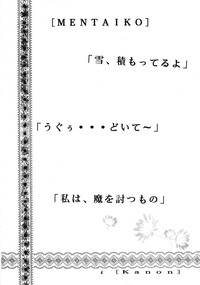 [MENTAIKO]
「雪、積もってるよ」
「うぐぅ・・・どいて～」
「私は、魔を討つもの」
[Kanon]